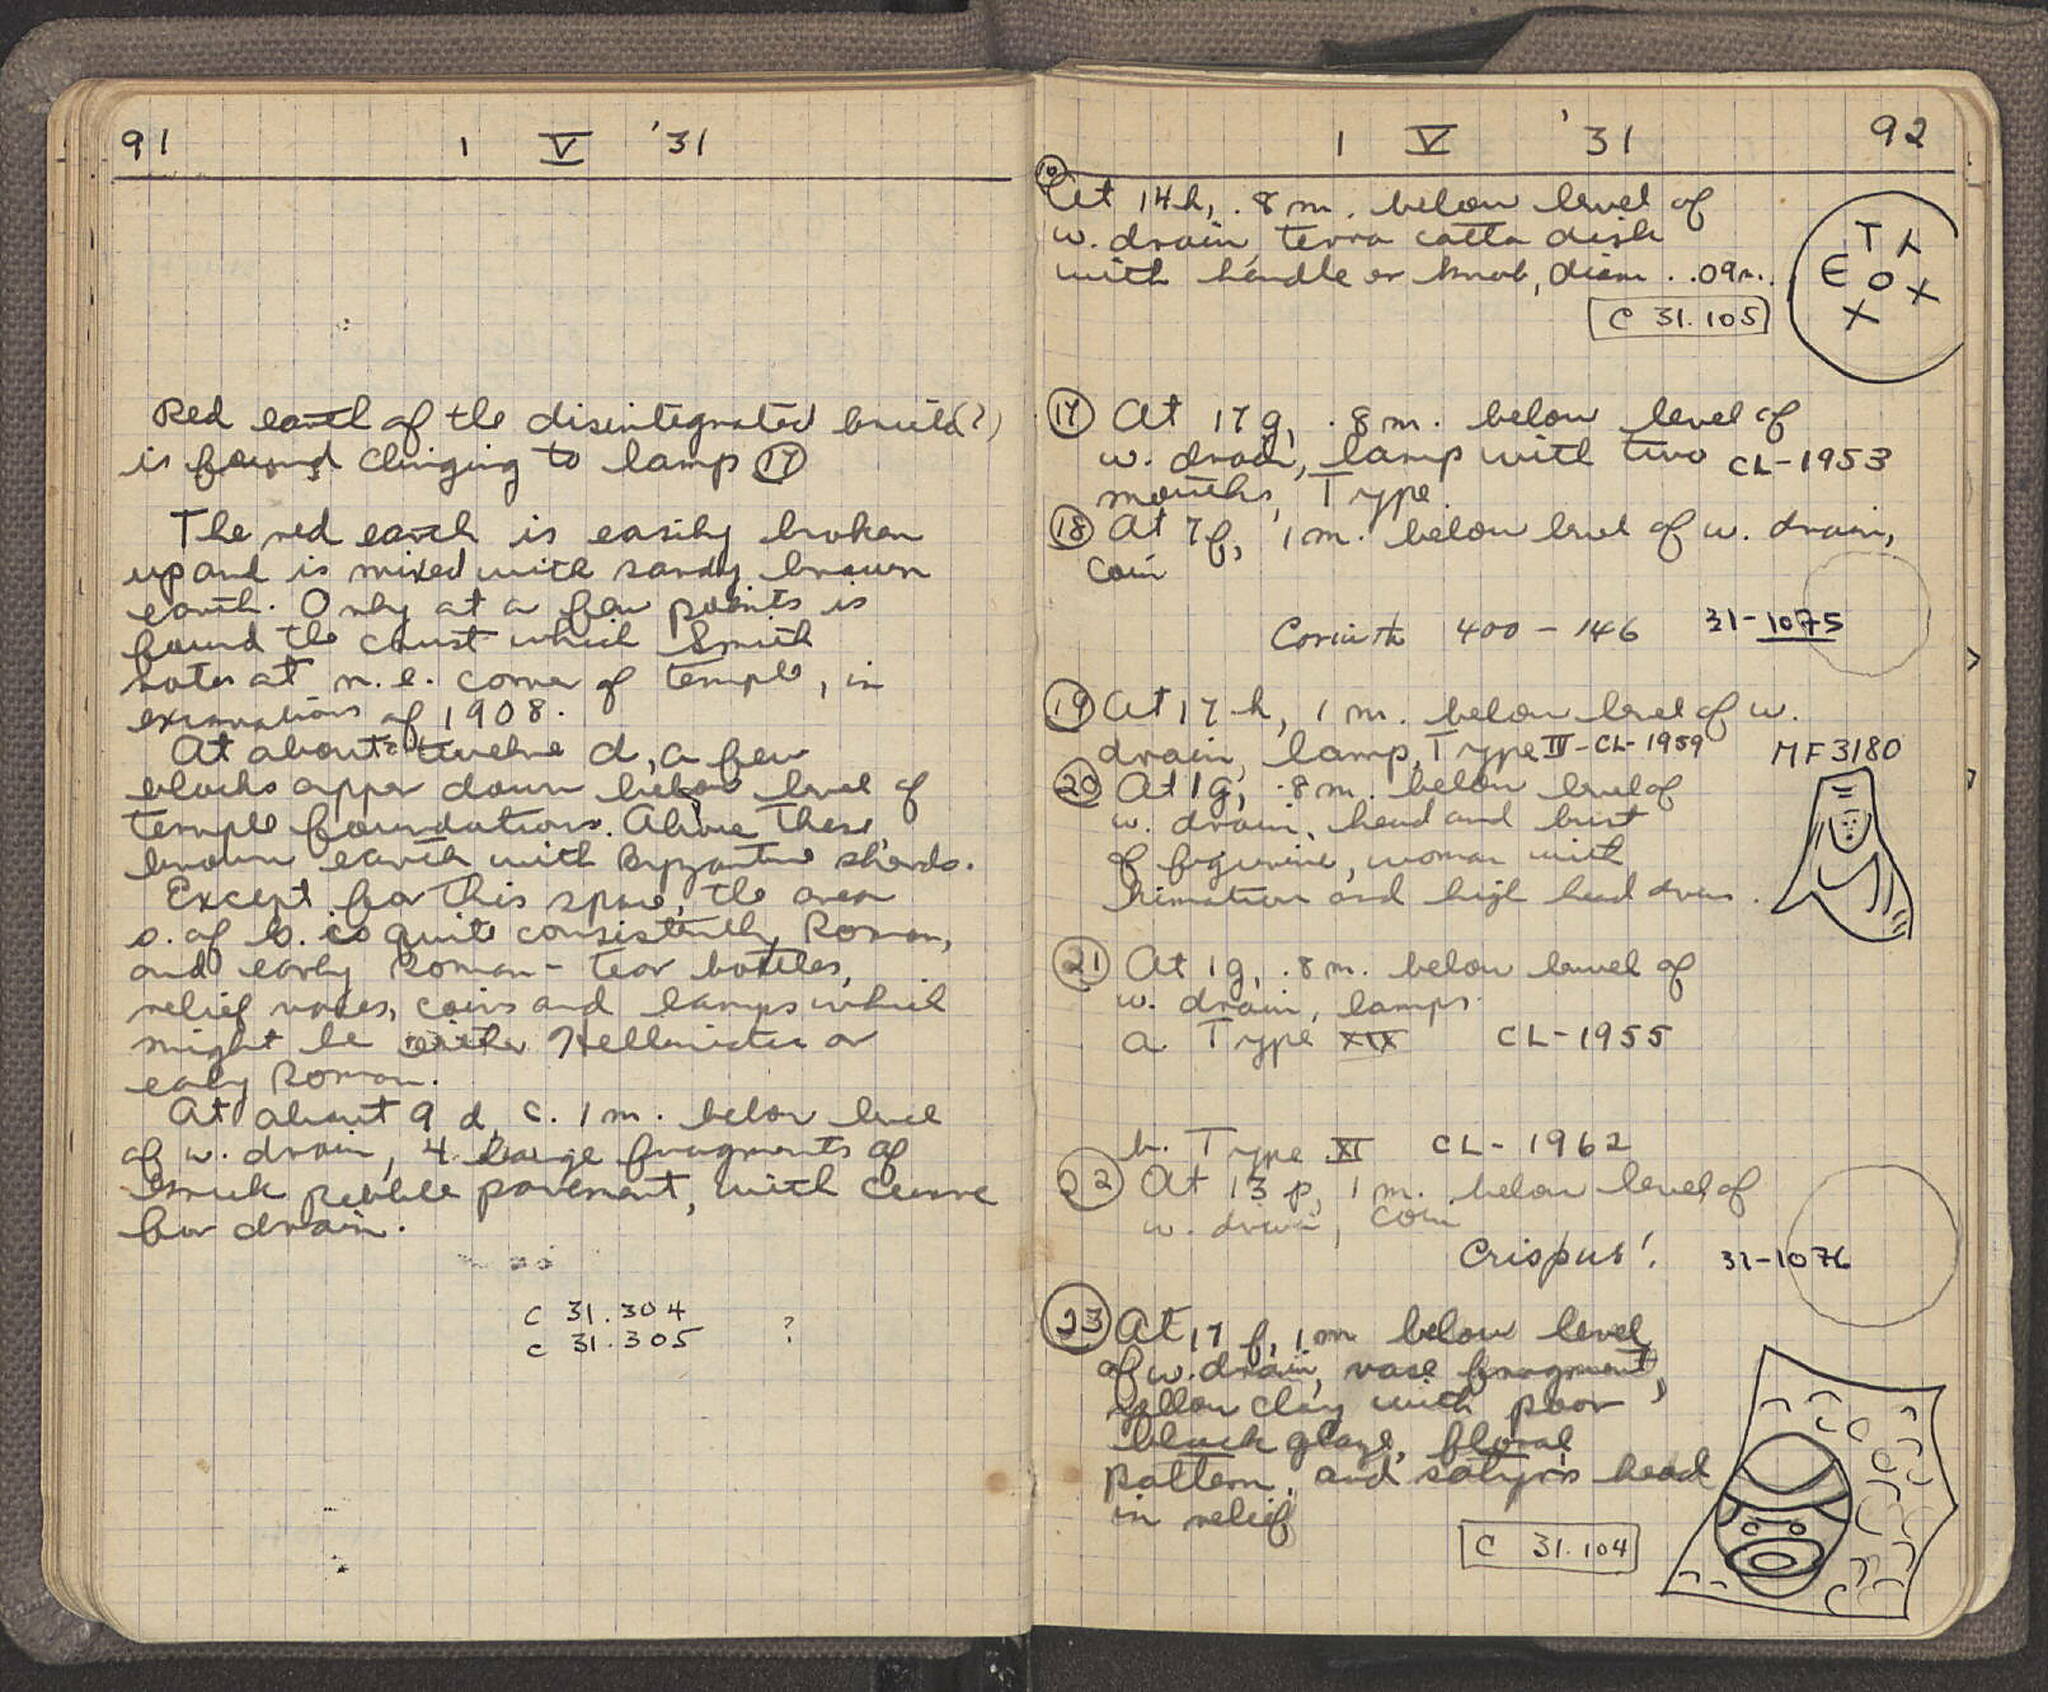 91 1 V '31
Red earth of the disintegrated build(?)
is found clinging to lamp 17
The red earth is easily broken
up and is mixed with sandy brown
earth. Only at a few points is
found the crust which Smith
notes at n.e. corner of temple, in
excavations of 1908.
At about twelve d, a few
blocks appear down below level of
temple foundations. Above these,
brown earth with Byzantine sherds.
Except for this space, the area
s. of b. is quite consistently Roman,
and early Roman - tear bottles,
relief vases, coins and lamps which
might be either Hellenistic or
early Roman.
At about 9 d, c. 1 m. below level
of w. drain, 4 large fragments of
Greek pebble pavement, with curve
for drain.
C 31.304
C 31.305 ?
1 V '31 92
At 14h, .8 m. below level of
w. drain, terra cotta disk
with handle or knob, diam. .09m.
C 31.105
T
E O X
X
17 At 17 g, .8 m. below level of
w. drain, lamp with two CL-1953
mouths, Type
18 At 7f, 1 m. below level of w. drain,
coin
Corinth 400 - 146 31-1075
19 At 17-h, 1 m. below level of w.
drain, lamp, Type III - CL-1959 MF3180
20 At 1g, .8 m. below level of
w. drain, head and bust
of figurine, woman with
himation and high head dress.
21 At 1g, .8 m. below level of
w. drain, lamps
a Type XIX CL-1955
b. Type XI CL-1962
22 At 13 p, 1 m. below level of
w. drain, coin
Crispus! 31-1076
23 At 17 f, 1 m below level
of w. drain, vase fragment,
yellow clay with poor
black glaze, floral
pattern, and satyr's head
in relief
C 31.104